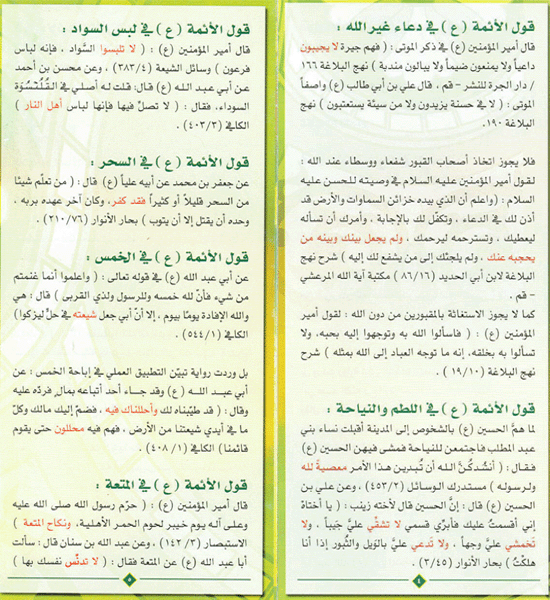 قول الأئمة ( ع ) في دعاء غير الله :
قال أمير المؤمنين (ع) في ذكر الموتى : ( فهم جيرة لا يجيبون
داعياً ولا يمنعون ضيماً ولا يبالون مندبة ) نهج البلاغة ١٦٦
/ دار الجرة للنشر – قم ، قال علي بن أبي طالب (ع) واصفاً
الموتى : ( لا في حسنة يزيدون ولا من سيئة يستعتبون ) نهج
البلاغة ١٩٠.
فلا يجوز اتخاذ أصحاب القبور شفعاء ووسطاء عند الله :
لقول أمير المؤمنين عليه السلام في وصيته للحسن عليه
السلام : (واعلم أن الذي بيده خزائن السماوات والأرض قد
أذن لك في الدعاء ، وتكفّل لك بالإجابة ، وأمرك أن تسأله
ليعطيك ، وتسترحمه ليرحمك ، ولم يجعل بينك وبينه من
يحجبه عنك ، ولم يلجئك إلى من يشفع لك إليه ) شرح نهج
البلاغة لابن أبي الحديد ( ٨٦/١٦ ) مكتبة آية الله المرعشي
– قم .
كما لا يجوز الاستغاثة بالمقبورين من دون الله : لقول أمير
المؤمنين (ع) : ( فاسألوا الله به وتوجهوا إليه بحبه، ولا
تسألوا به بخلقه، إنه ما توجه العباد إلى الله بمثله ) شرح
نهج البلاغة ( ١٩/١٠ )
قول الأئمة ( ع ) في اللطم والنياحة :
لما همّ الحسين (ع) بالشخوص إلى المدينة أقبلت نساء بني
عبد المطلب فاجتمعن للنياحة فمشى فيهن الحسين (ع)
فقال : ( أنشدكنّ الله أن تُبدين هذا الأمر معصيةً لله
ولرسوله ) مستدرك الوسائل (٤٥٣/٢) ، وعن علي بن
الحسين (ع) قال: إنّ الحسين قال لأخته زينب : ( يا أختاه
إني أقسمتُ عليك فأبرّي قسمي لا تشقّي عليّ جيباً ، ولا
تخمشي عليّ وجهاً ، ولا تدعي عليّ بالويل والثبور إذا أنا
هلكتُ ) بحار الأنوار (٣/٤٥)
٤
قول الأئمة ( ع ) في لبس السواد :
قال أمير المؤمنين (ع) : ( لا تلبسوا السَّواد ، فإنه لباس
فرعون ) وسائل الشيعة (٣٨٣/٤) ، وعن محسن بن أحمد
عن أبي عبد الله (ع) قال: قلت له أصلي في القَلَنْسُوَة
السوداء، فقال : ( لا تصلّ فيها فإنها لباس أهل النار )
الكافي (٤٠٣/٣) .
قول الأئمة ( ع ) في السحر :
عن جعفر بن محمد عن أبيه علياً (ع) قال : ( من تعلّم شيئا
من السحر قليلاً أو كثيراً فقد كفر، وكان آخر عهده بربه .
وحده أن يقتل إلا أن يتوب ) بحار الأنوار (٢١٠/٧٦) .
قول الأئمة ( ع ) في الخمس :
عن أبي عبد الله (ع) في قوله تعالى : ( واعلموا أنما غنمتم
من شيء فأنّ لله خمسه وللرسول ولذي القربى ) قال : هي
والله الإفادة يومًا بيوم ، إلا أنّ أبي جعل شيعته في حلٍّ ليزكوا)
الكافي (٥٤٤/١)
بل وردت رواية تبيّن التطبيق العملي في إباحة الخمس : عن
أبي عبد الله (ع) وقد جاء أحد أتباعه بمالٍ فردّه عليه
وقال : ( قد طيّبناه لك وأحللناك فيه ، فضمّ إليك مالك وكلّ
ما في أيدي شيعتنا من الأرض ، فهم فيه محللون حتى يقوم
قائمنا ) الكافي (١/ ٤٠٨) .
قول الأئمة ( ع ) في المتعة :
قال أمير المؤمنين (ع) : ( حرّم رسول الله صلى الله عليه
وعلى آله يوم خيبر لحوم الحمر الأهلية، ونكاح المتعة )
الاستبصار (١٤٢/٣) ، وعن عبد الله بن سنان قال : سألت
أبا عبد الله (ع) عن المتعة فقال : ( لا تدنّس نفسك بها )
٥